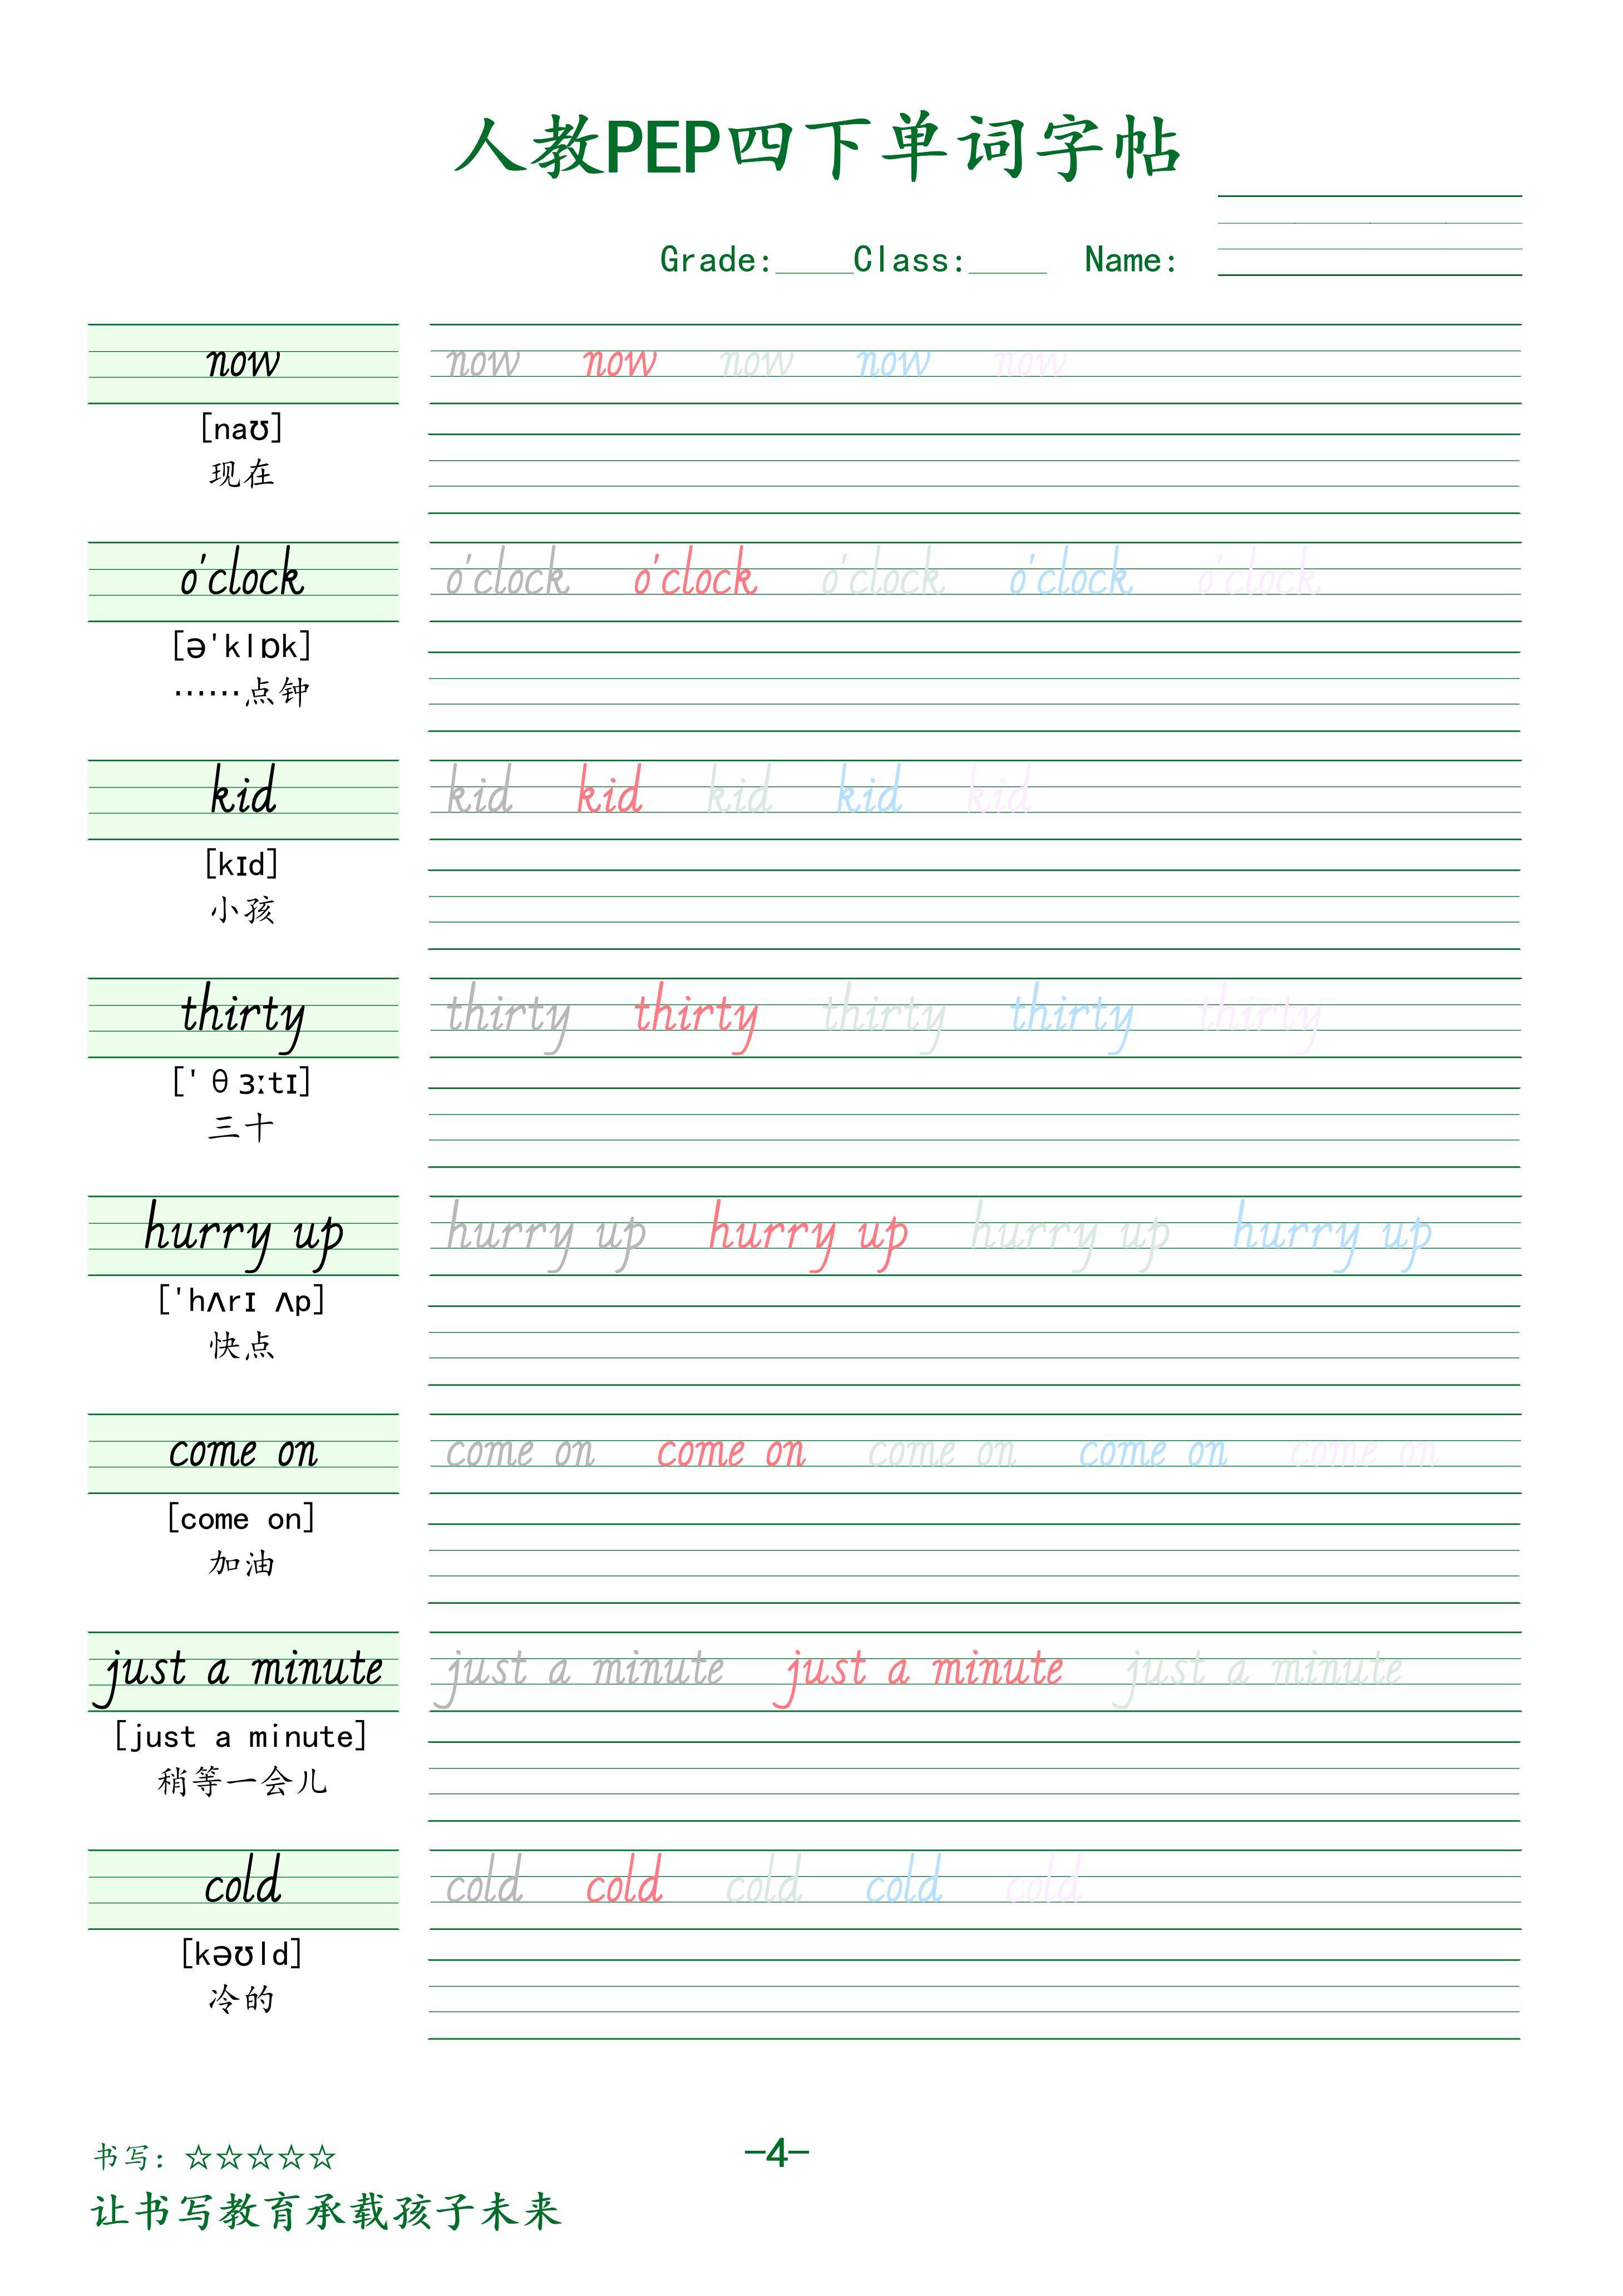 人教PEP四下单词字帖
Grade:____Class:____ Name:
now now now now now now
[naʊ]
现在
o'clock o'clock o'clock o'clock o'clock o'clock
[ə'klɒk]
……点钟
kid kid kid kid kid kid
[kɪd]
小孩
thirty thirty thirty thirty thirty thirty
['θɜːtɪ]
三十
hurry up hurry up hurry up hurry up hurry up
['hʌrɪ ʌp]
快点
come on come on come on come on come on come on
[come on]
加油
just a minute just a minute just a minute just a minute
[just a minute]
稍等一会儿
cold cold cold cold cold cold
[kəʊld]
冷的
书写：☆☆☆☆☆
-4-
让书写教育承载孩子未来